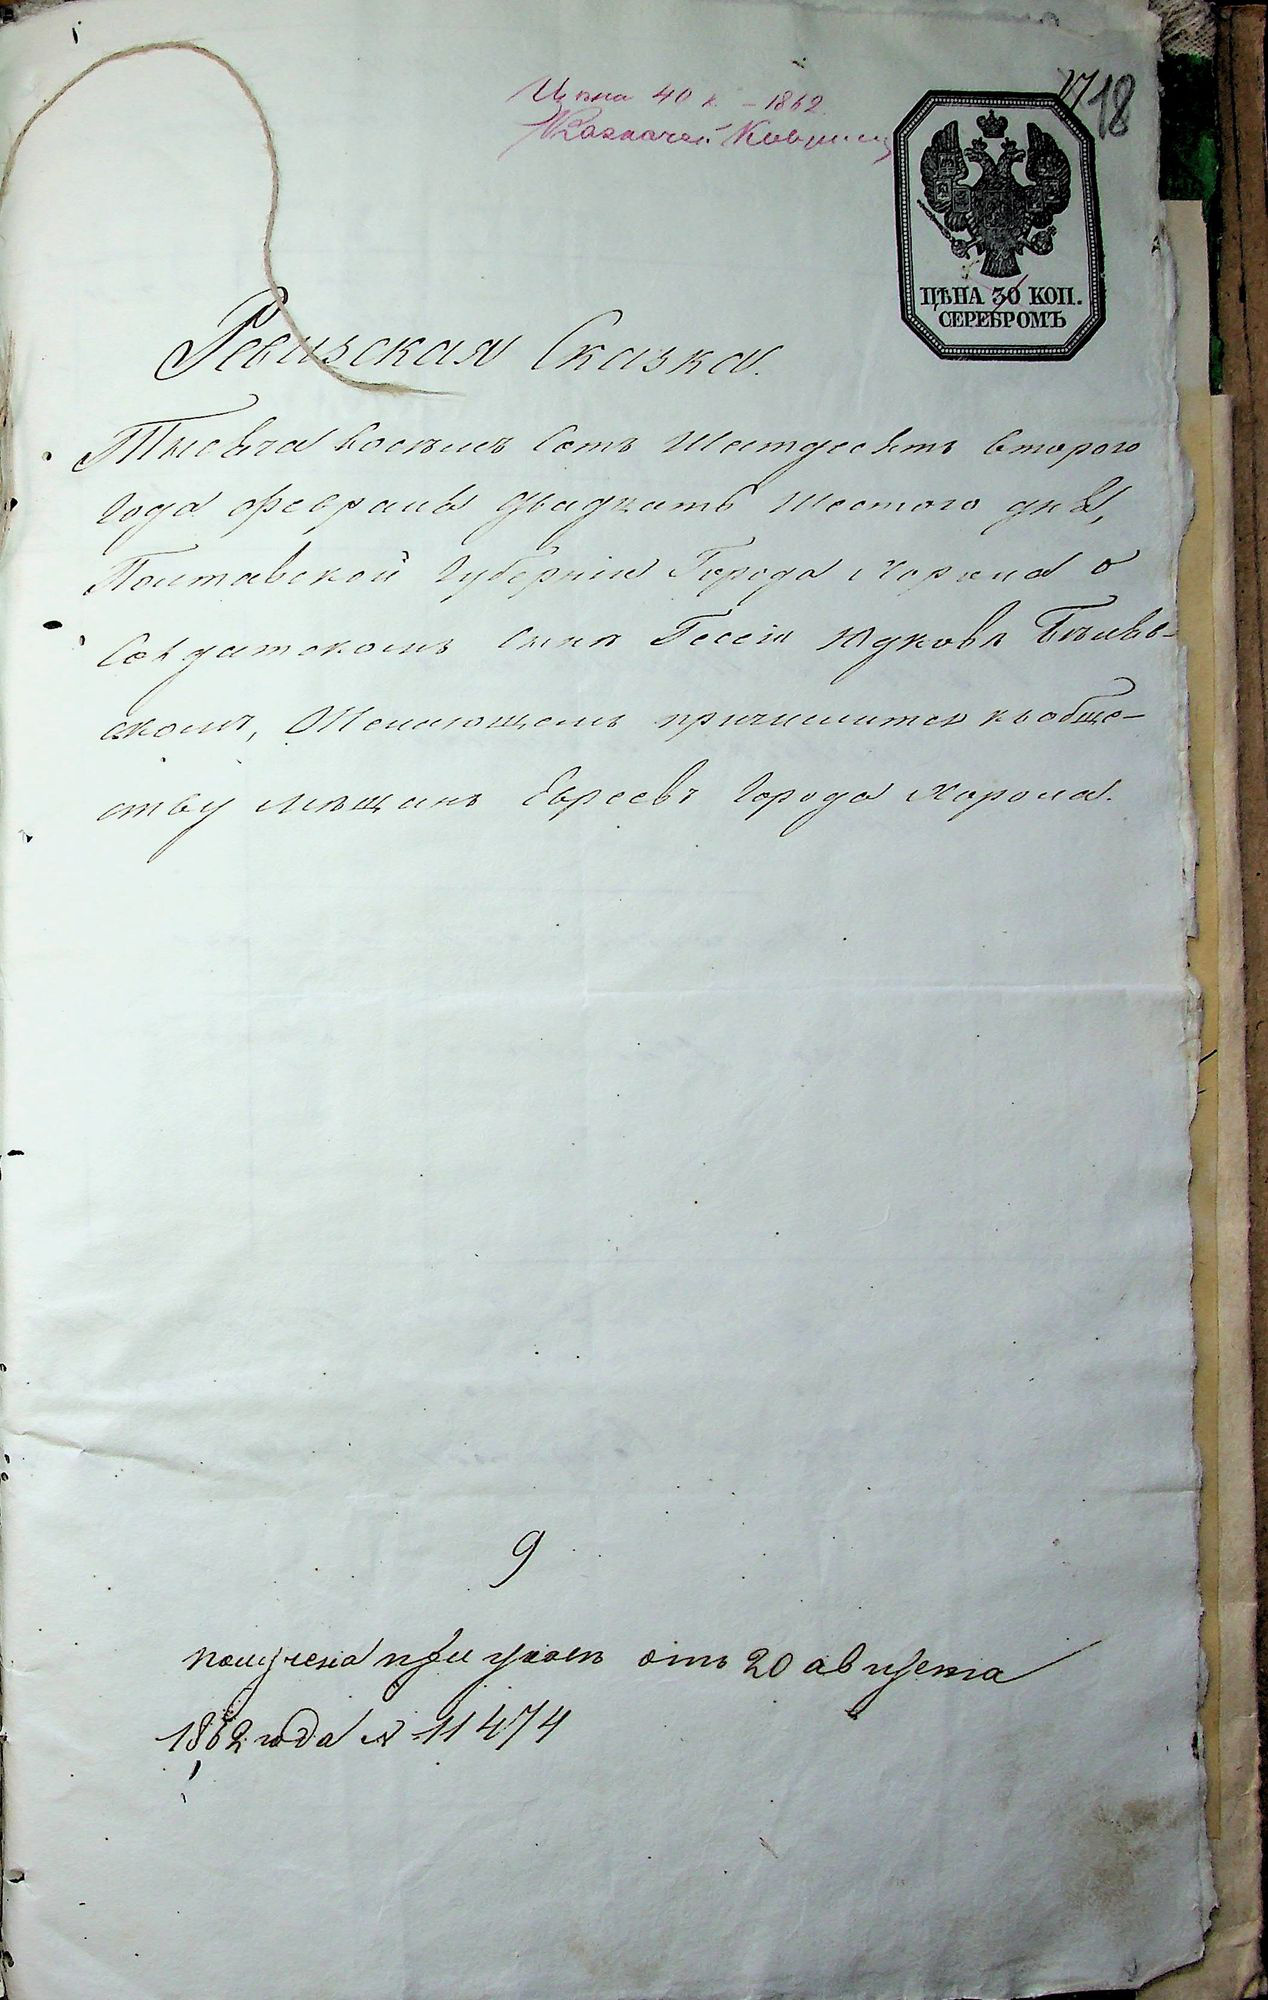 Цѣна 40 к – 1862
Казначей
17 18
ЦѢНА 30 КОП.
СЕРЕБРОМЪ
Ревизская Сказка.
Тысяча восемъ Сотъ Шестдесятъ второго
Года Февраля Двадцать Шестого дня,
Полтавской Губерніи Города Хорола о
Солдатскомъ Сынѣ Гесеіи Юдковѣ Бѣляв-
скомъ, Желающемъ причислится къ обще-
ству мѣщанъ Евреевъ Города Хорола.
9
получена при указѣ отъ 20 августа
1862 года № 11474